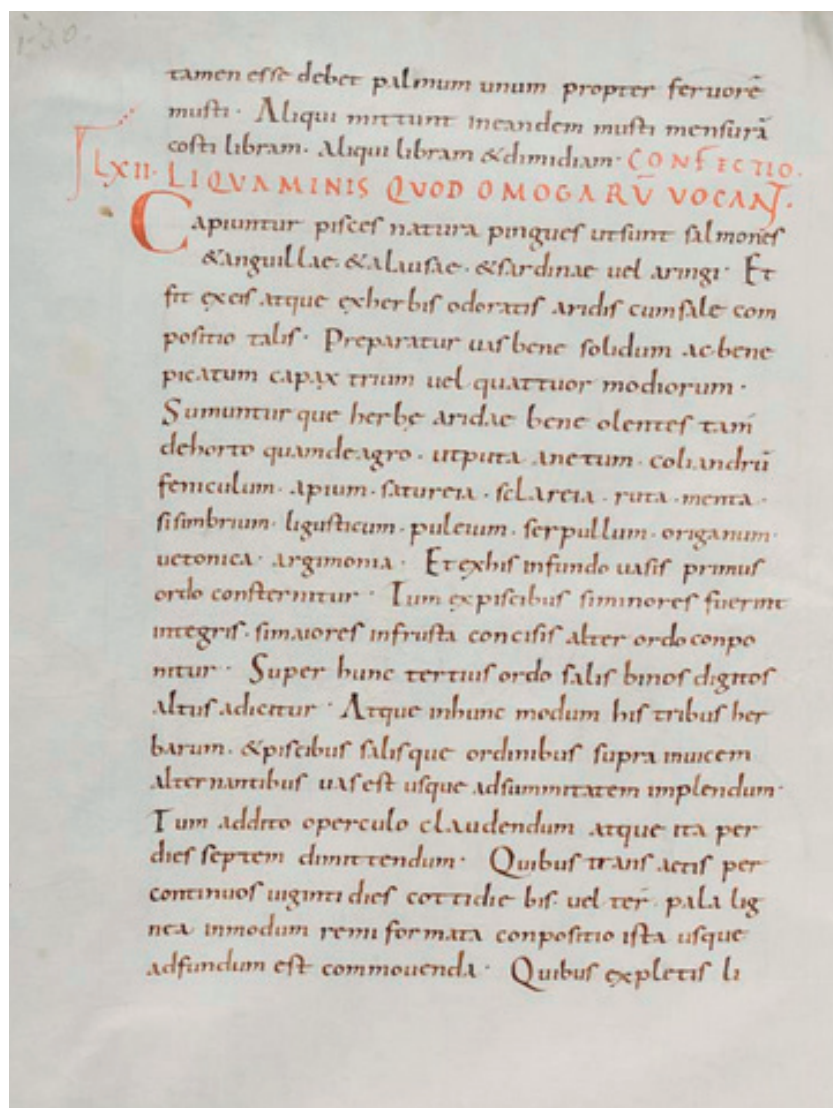 130.
tamen esse debet palmum unum propter feruorē
musti · Aliqui mittunt ineandem musti mensurā
costi libram · aliqui libram &dimidiam · CONFECTIO ·
LXII · LIQVAMINIS QUOD OMOGARŪ VOCANT ·
Capiuntur pisces natura pingues utsunt salmones
&anguillae · &alausae · &sardinae uel aringi · Et
fit ęxeis atque ęxherbis odoratis aridis cumsale com
positio talis · Preparatur uas bene solidum ac bene
picatum capax trium uel quattuor modiorum ·
Sumuntur que herbę aridae bene olentes tam
dehorto quamdeagro · utputa anetum · coliandrū
feniculum · apium · satureia · sclareia · ruta · menta ·
sisimbrium · ligusticum · puleium · serpullum · origanum ·
uetonica · argimonia · Et ęxhis infundo uasis primus
ordo consternitur · Tum ęxpiscibus siminores fuerint
integris · simaiores infrusta concisis alter ordo conpo
nitur · Super hunc tertius ordo salis binos digitos
altus adicitur · Atque inhunc modum his tribus her
barum · &piscibus salisque ordinibus supra inuicem
alternantibus uas est usque adsummitatem implendum ·
Tum addito operculo claudendum atque ita per
dies septem dimittendum · Quibus transactis per
continuos uiginti dies cottidie bis · uel ter · pala lig
nea inmodum remi formata conpositio ista usque
adfundum est commouenda · Quibus ęxpletis li